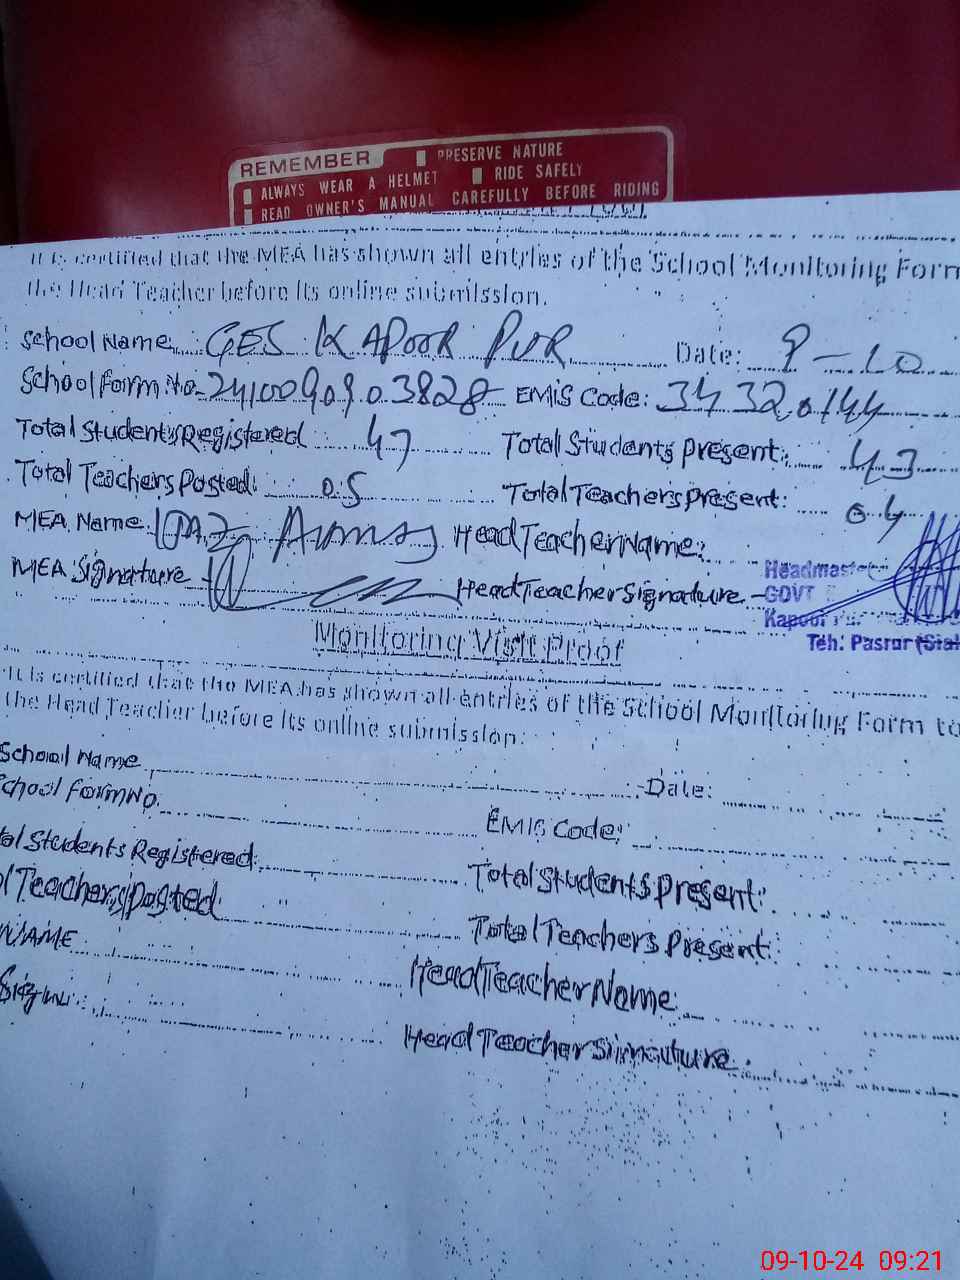 REMEMBER PRESERVE NATURE
ALWAYS WEAR A HELMET RIDE SAFELY
READ OWNER'S MANUAL CAREFULLY BEFORE RIDING
It is certified that the MEA has shown all entries of the School Monitoring Form
the Head Teacher before its online submission.
School Name: GES KAPOOR PUR Date: 9-10
School Form No. 2410090903828 EMIS Code: 34320144
Total Students Registered 47 Total Students present: 43
Total Teachers Posted: 05 Total Teachers present: 04
MEA Name: Head Teacher Name:
MEA Signature Head Teacher Signature
Headmaster
GOVT
Kapoor
Teh: Pasrur (Sial
Monitoring Visit Proof
It is certified that the MEA has shown all entries of the School Monitoring Form to
the Head Teacher before its online submission.
School Name Date:
School Form No. EMIS Code:
tal Students Registered: Total Students Present:
l Teachers Posted Total Teachers Present:
NAME Head Teacher Name:
Head Teacher Signature
09-10-24 09:21